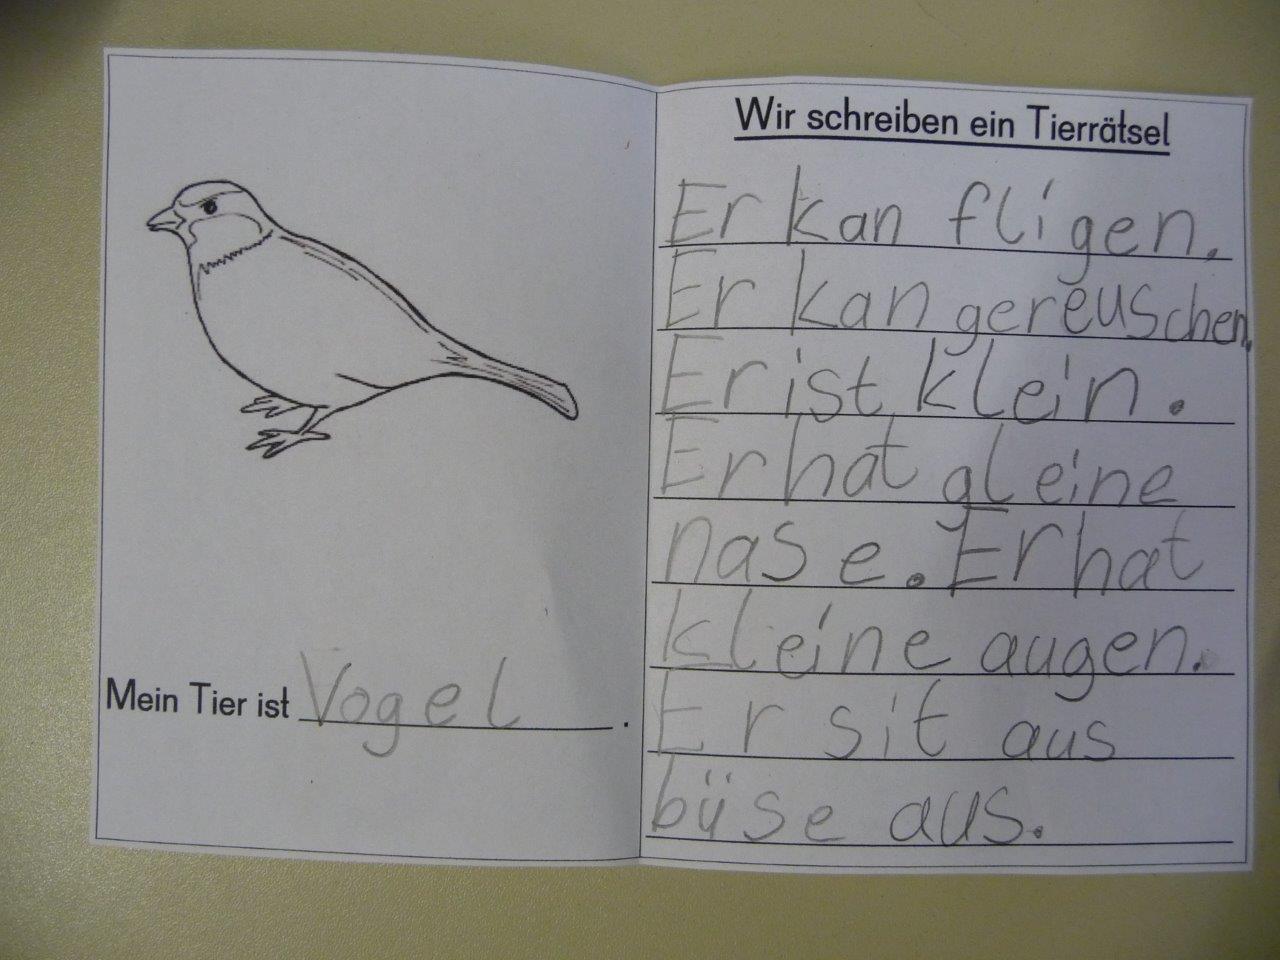 Wir schreiben ein Tierrätsel
Er kan fligen.
Er kan gereuschen.
Er ist klein.
Er hat gleine
nase. Er hat
kleine augen.
Er sit aus
büse aus.
Mein Tier ist Vogel.